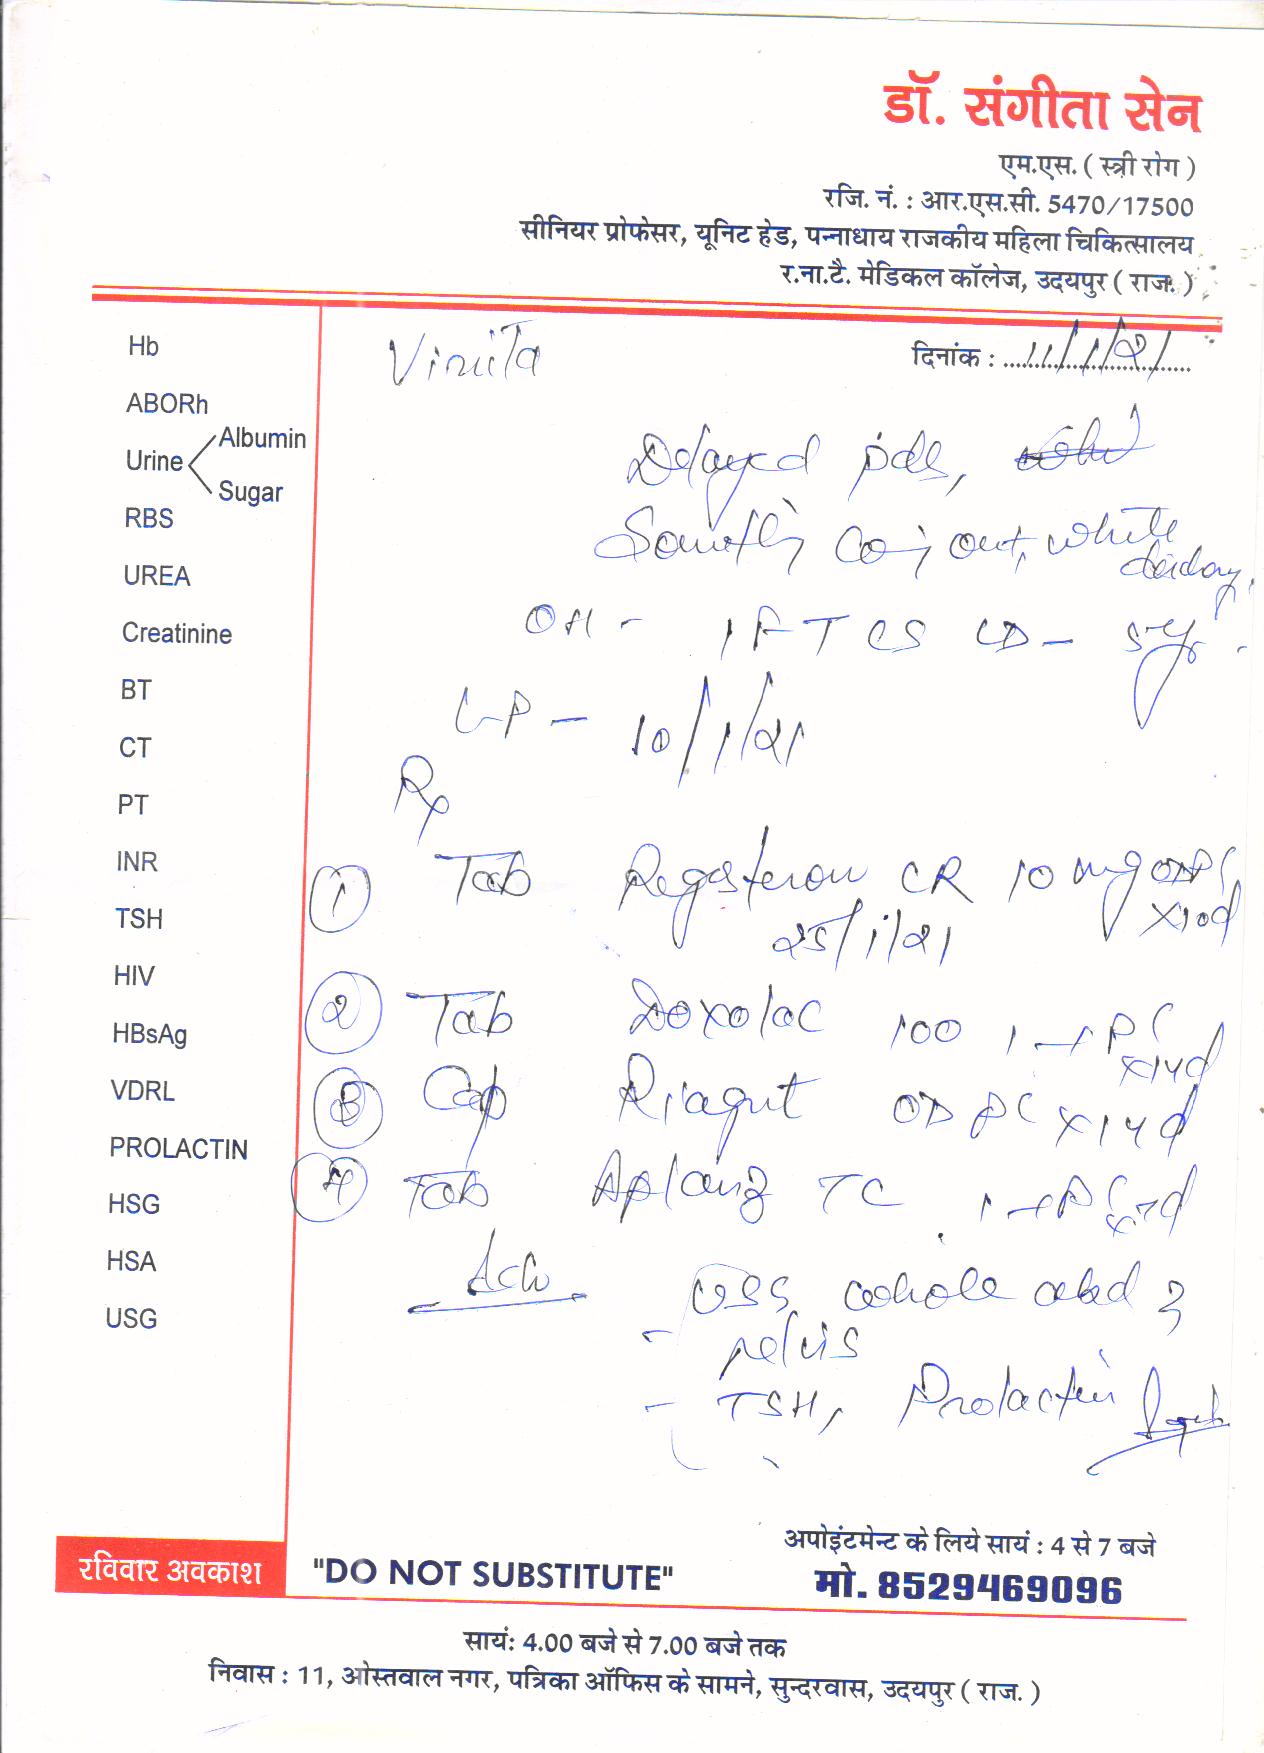 डॉ. संगीता सेन
एम.एस. ( स्त्री रोग )
रजि. नं. : आर.एस.सी. 5470/17500
सीनियर प्रोफेसर, यूनिट हेड, पन्नाधाय राजकीय महिला चिकित्सालय
र.ना.टै. मेडिकल कॉलेज, उदयपुर ( राज. )
दिनांक : 11/1/21
Hb
ABORh
Urine Albumin
Sugar
RBS
UREA
Creatinine
BT
CT
PT
INR
TSH
HIV
HBsAg
VDRL
PROLACTIN
HSG
HSA
USG
Delayed pds,
out, white
OH - 1 FTCS LD - 5yr
LP - 10/1/21
Rx
1 Tab Regesteron CR 10 mg OD PC x10d
25/1/21
2 Tab Doxolac 100 1-1 PC x14d
3 Cap OD PC x14d
4 Tab TC 1-1 PC x7d
Adv
whole abd
pelvis
- TSH, Prolactin
रविवार अवकाश
"DO NOT SUBSTITUTE"
अपोइंटमेन्ट के लिये सायं : 4 से 7 बजे
मो. 8529469096
सायं: 4.00 बजे से 7.00 बजे तक
निवास : 11, ओस्तवाल नगर, पत्रिका ऑफिस के सामने, सुन्दरवास, उदयपुर ( राज. )